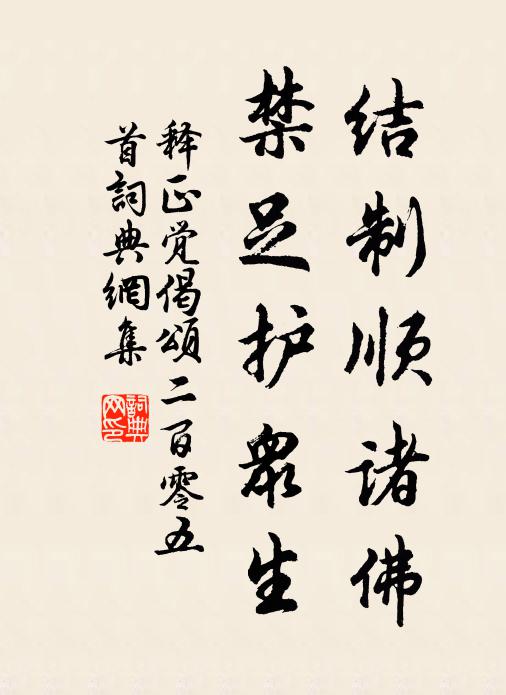 结制顺诸佛
禁足护众生
释正觉偈颂二百零五
首词典網集
詞典
网印